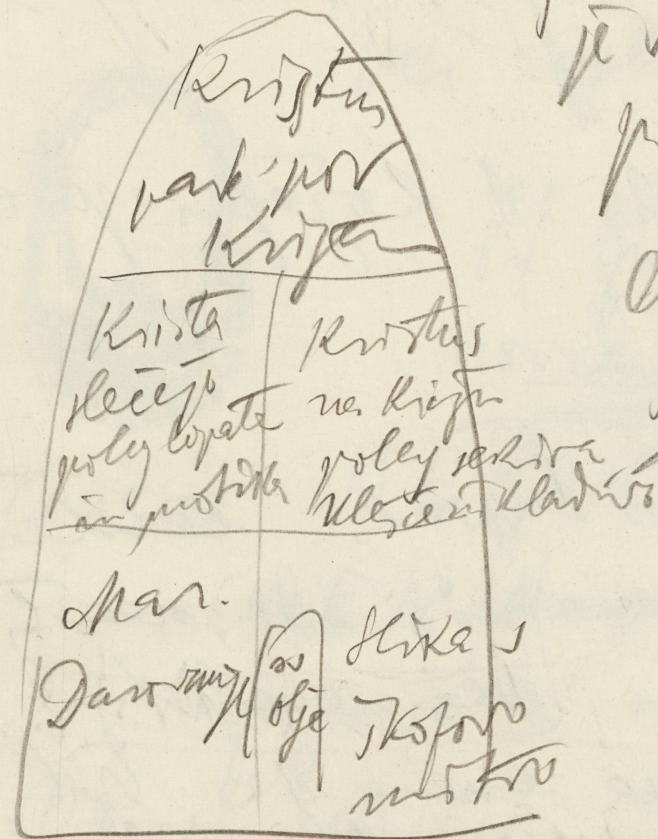 Kristus
pade pod
Križem
Krista
slečejo
poleg lopata
in motika
Kristus
na Križu
poleg sekira
klešče in kladivo
Mar.
Darovanje
sv
olje
slika s
škofovo
mitro
je